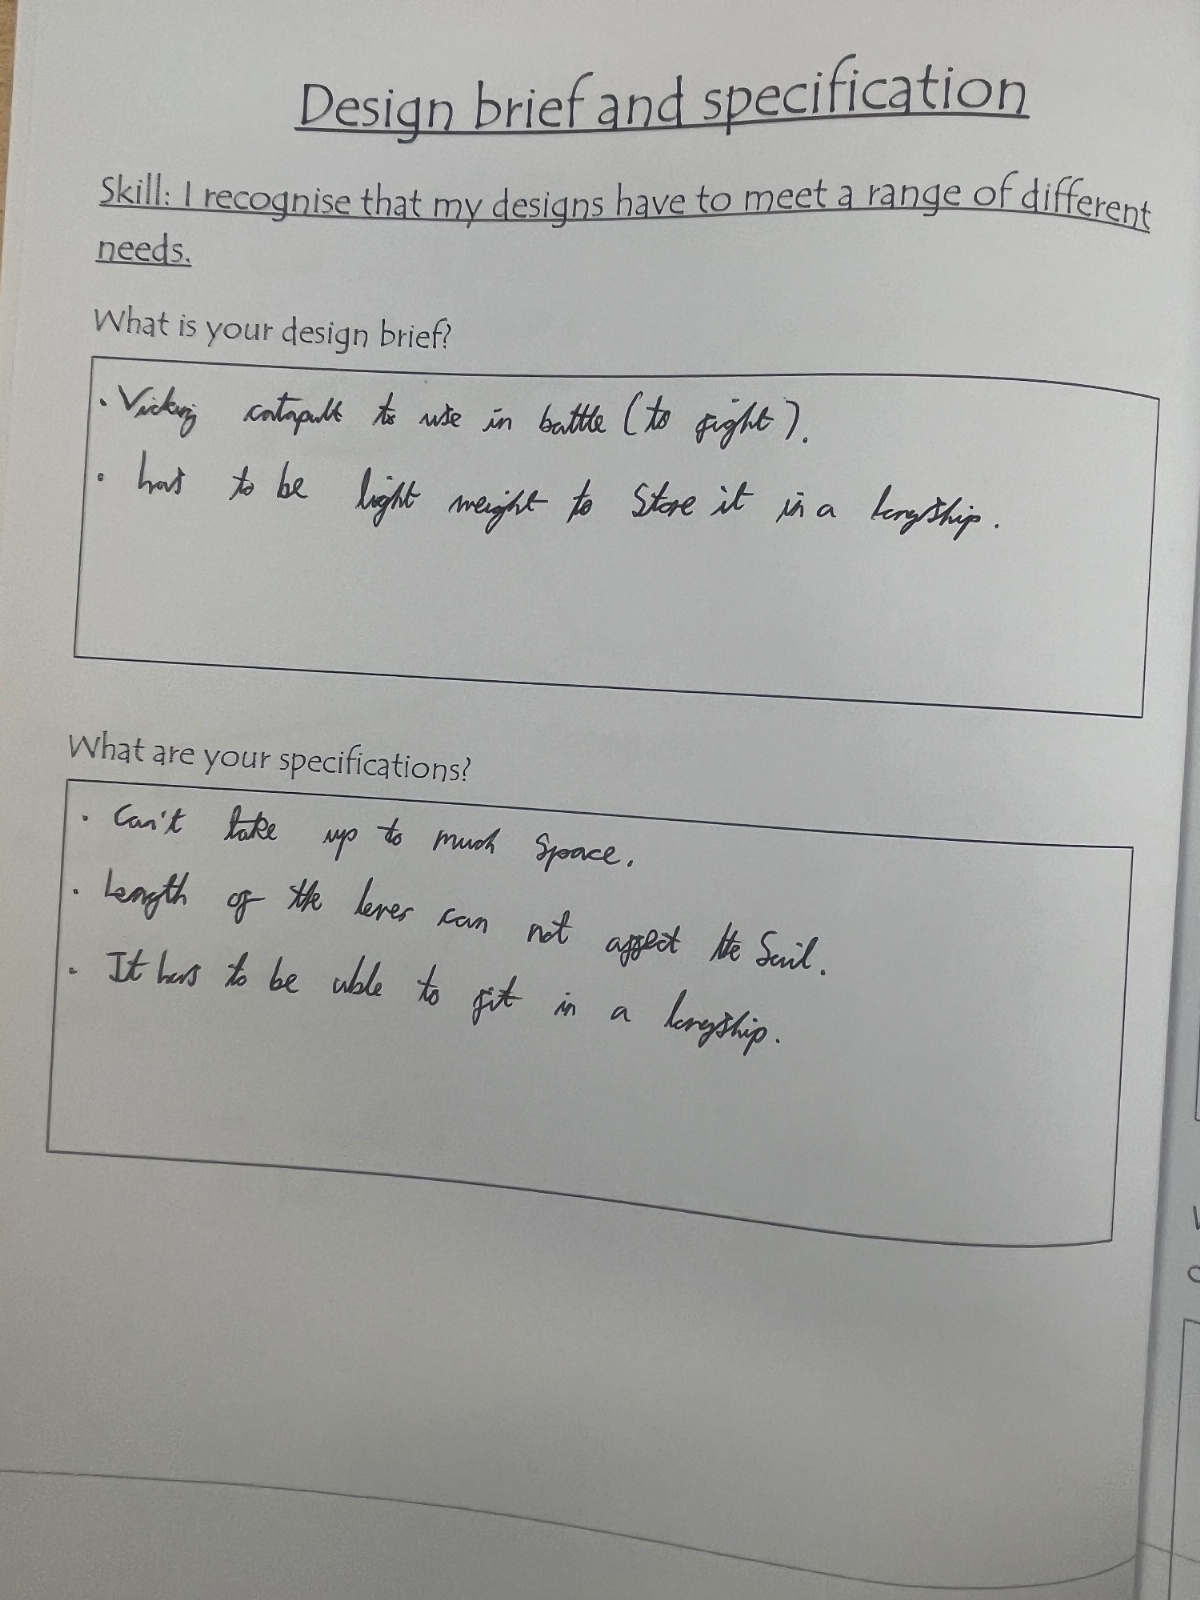 Design brief and specification
Skill: I recognise that my designs have to meet a range of different
needs.
What is your design brief?
• Vicking catapult to use in battle (to fight).
• has to be light weight to Store it in a longship.
What are your specifications?
• Can't take up to much Space.
• Length of the lever can not affect the Sail.
• It has to be able to fit in a longship.